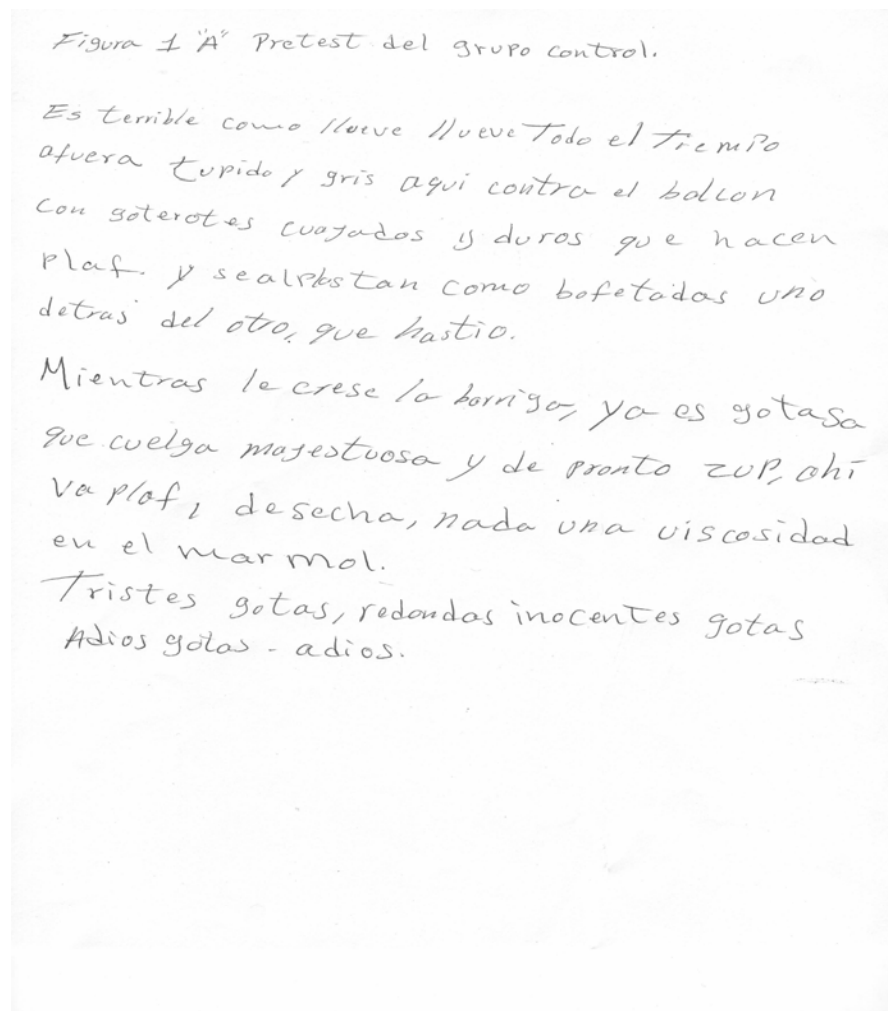 Figura 1 "A" Pretest del grupo control.
Es terrible como llueve llueve Todo el Tiempo
afuera tupido y gris aqui contra el balcon
con goterotes cuajados y duros que hacen
plaf. y sealplastan como bofetadas uno
detras del otro, que hastio.
Mientras le crese la barriga, ya es gotasa
que cuelga majestuosa y de pronto zup, ahi
va plaf, desecha, nada una viscosidad
en el marmol.
Tristes gotas, redondas inocentes gotas
Adios gotas - adios.